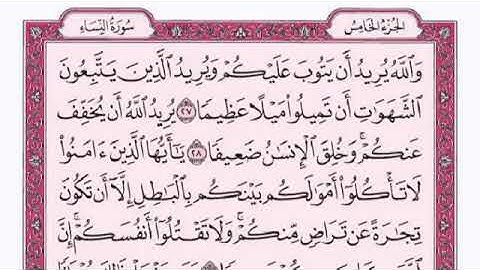 الجزء الخامس
سورة النساء
وَٱللَّهُ يُرِيدُ أَن يَتُوبَ عَلَيْكُمْ وَيُرِيدُ ٱلَّذِينَ يَتَّبِعُونَ
ٱلشَّهَوَٰتِ أَن تَمِيلُوا۟ مَيْلًا عَظِيمًا ٢٧ يُرِيدُ ٱللَّهُ أَن يُخَفِّفَ
عَنكُمْ ۚ وَخُلِقَ ٱلْإِنسَٰنُ ضَعِيفًا ٢٨ يَٰٓأَيُّهَا ٱلَّذِينَ ءَامَنُوا۟
لَا تَأْكُلُوٓا۟ أَمْوَٰلَكُم بَيْنَكُم بِٱلْبَٰطِلِ إِلَّآ أَن تَكُونَ
تِجَٰرَةً عَن تَرَاضٍ مِّنكُمْ ۚ وَلَا تَقْتُلُوٓا۟ أَنفُسَكُمْ ۚ إِنَّ